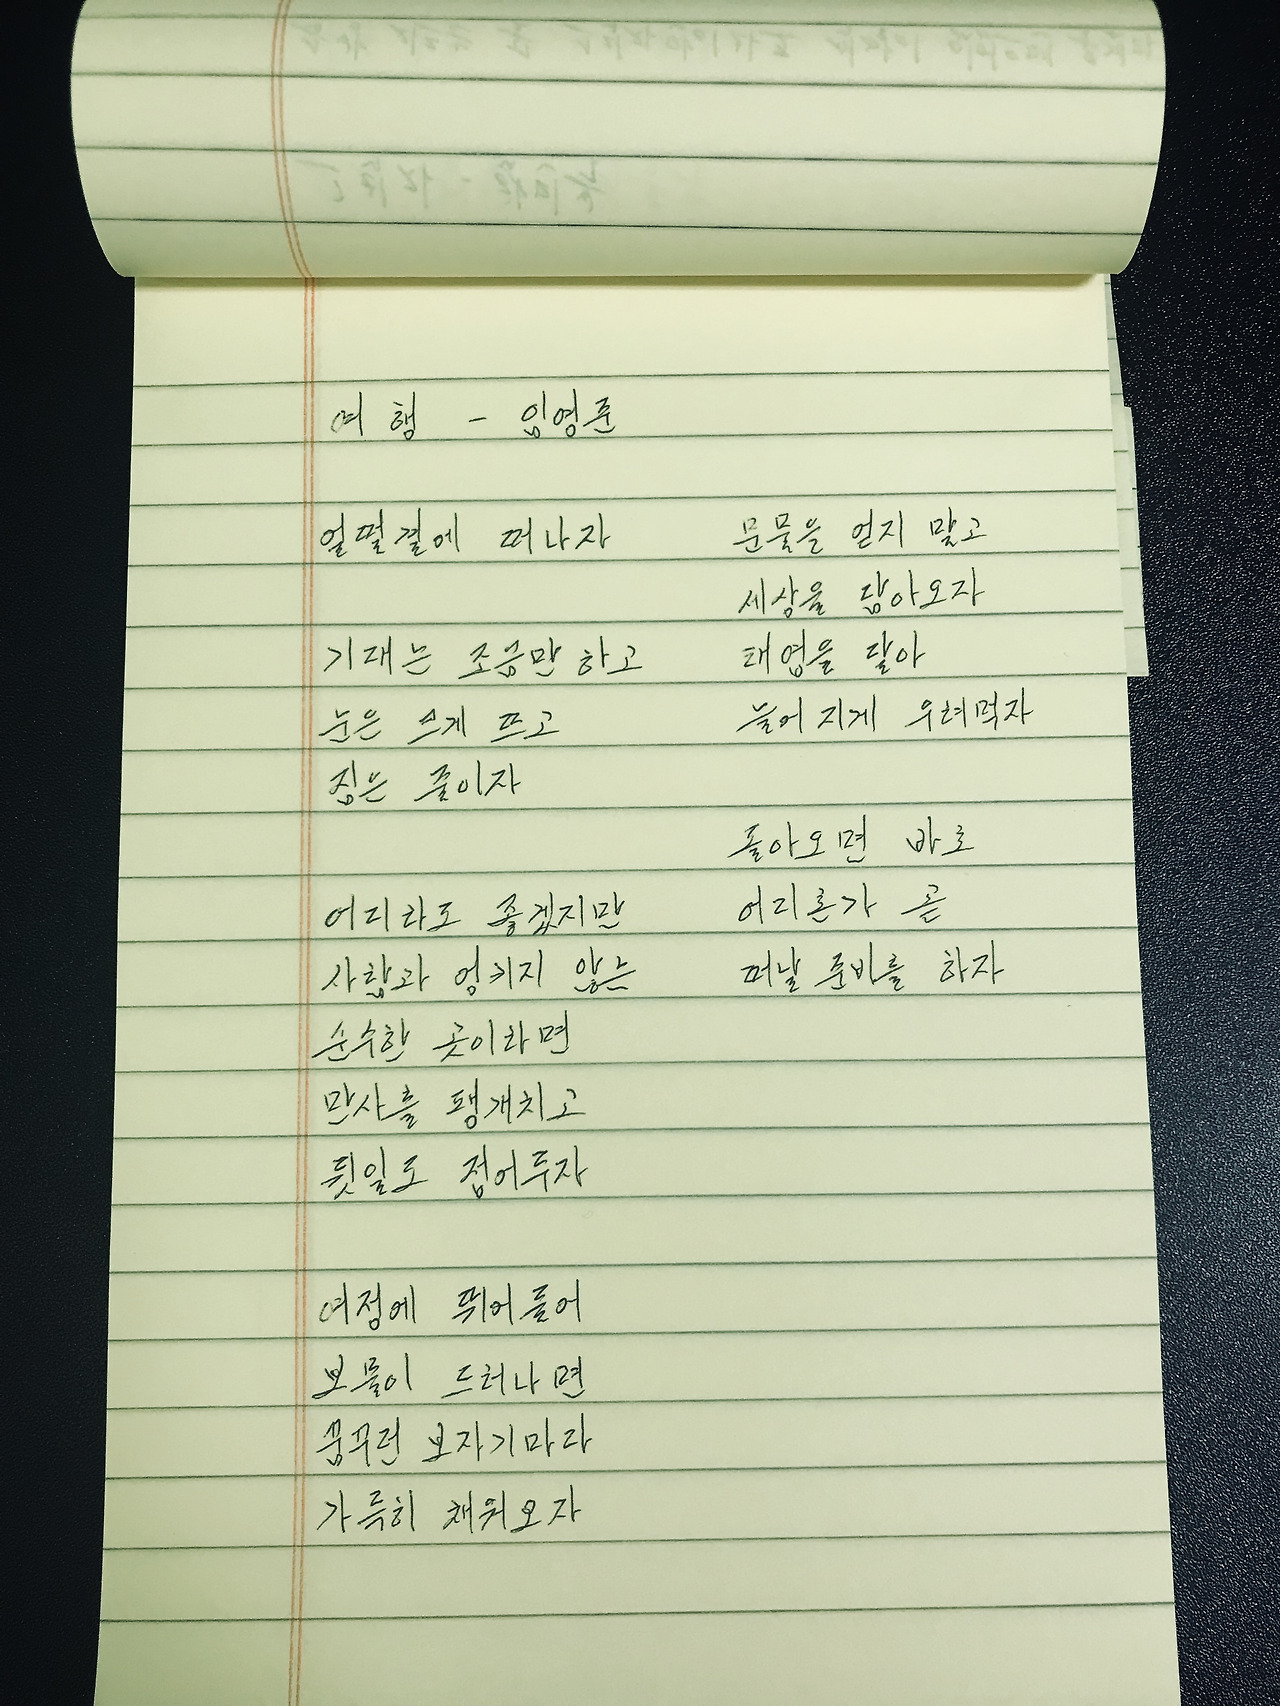 여행 - 임영준
얼떨결에 떠나자
기대는 조금만 하고
눈은 크게 뜨고
짐은 줄이자
어디라도 좋겠지만
사람과 엉키지 않는
순수한 곳이라면
만사를 팽개치고
뒷일도 접어두자
여정에 뛰어들어
보물이 드러나면
꿈꾸던 보자기마다
가득히 채워오자
문물을 얻지 말고
세상을 담아오자
태엽을 달아
늘어지게 우려먹자
돌아오면 바로
어디론가 곧
떠날 준비를 하자